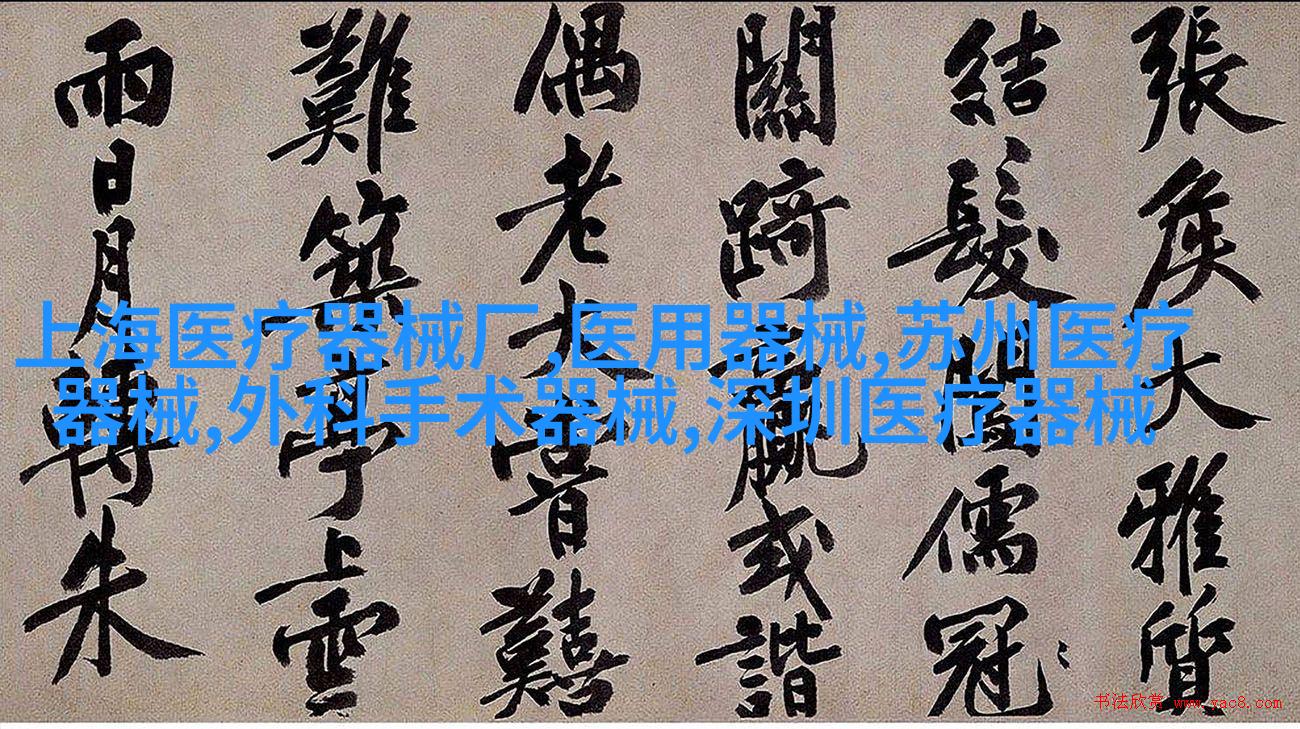 張侯大雅質
結髮儒冠
關踦羸或諧
偶老大嘗囏
難築亭上雲
雨日月朱
上海医疗器械厂,医用器械,苏州医疗
器械,外科手术器械,深圳医疗器械
书法欣赏 www.yac8.com